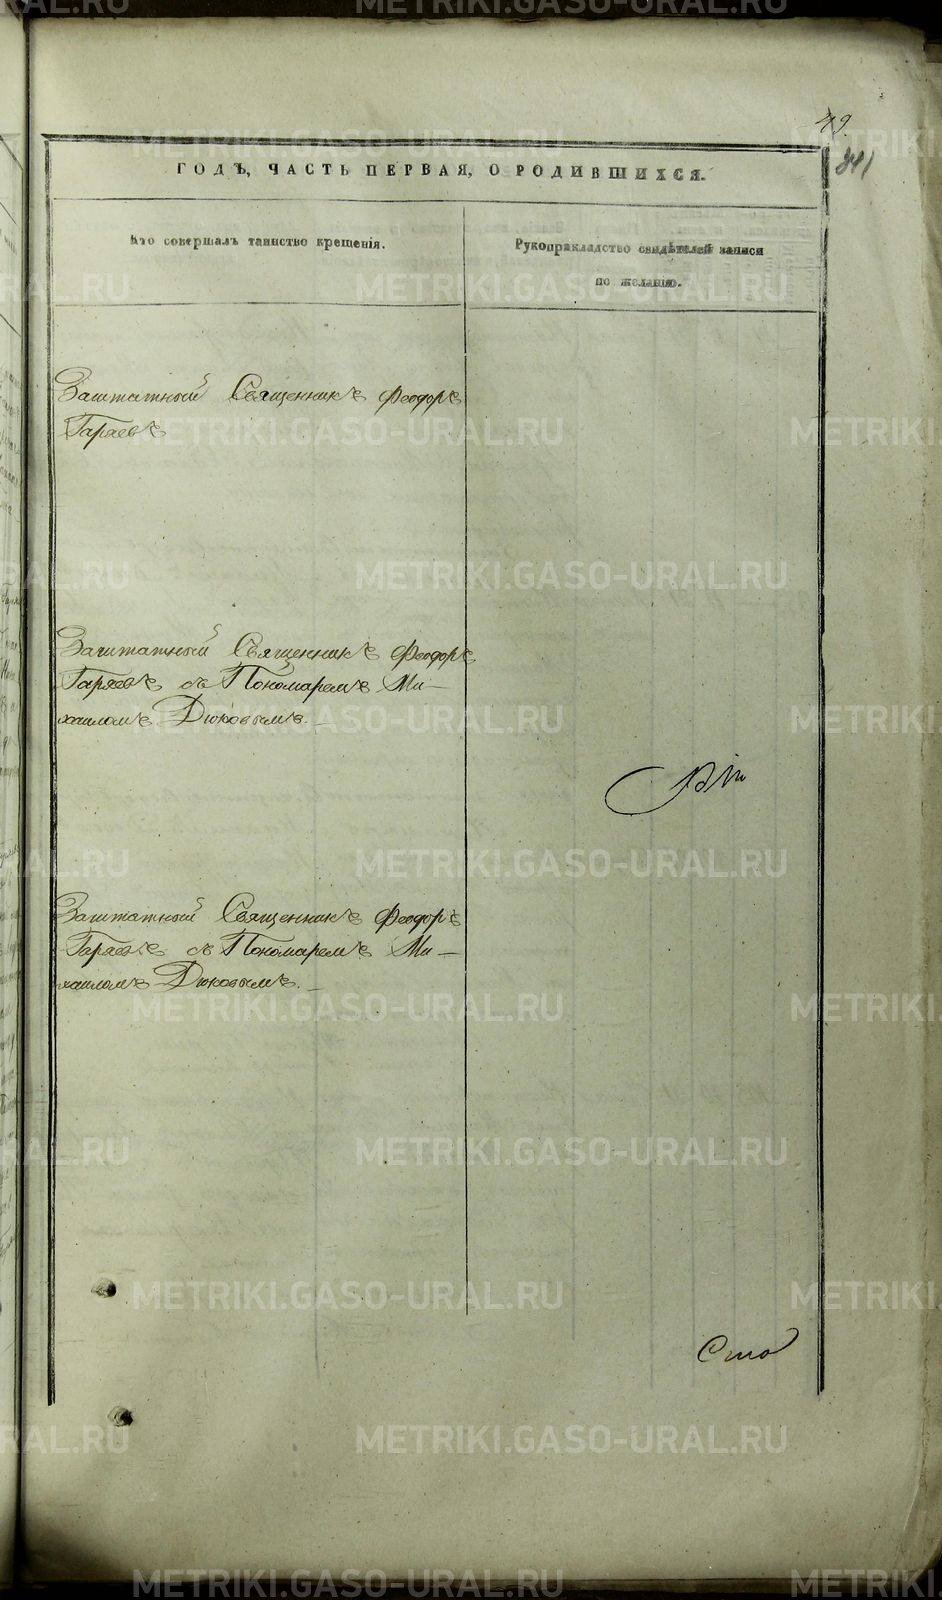 49.
341
ГОДЪ, ЧАСТЬ ПЕРВАЯ, О РОДИВШИХСЯ.
Кто совершалъ таинство крещенія.
Рукоприкладство свидѣтелей записи
по желанію.
Заштатный Священникъ Феодоръ
Гаряевъ
Заштатный Священникъ Феодоръ
Гаряевъ съ Пономаремъ Ми–
хаиломъ Дюковымъ. –
Заштатный Священникъ Феодоръ
Гаряевъ съ Пономаремъ Ми–
хаиломъ Дюковымъ. –
Сто
METRIKI.GASO-URAL.RU